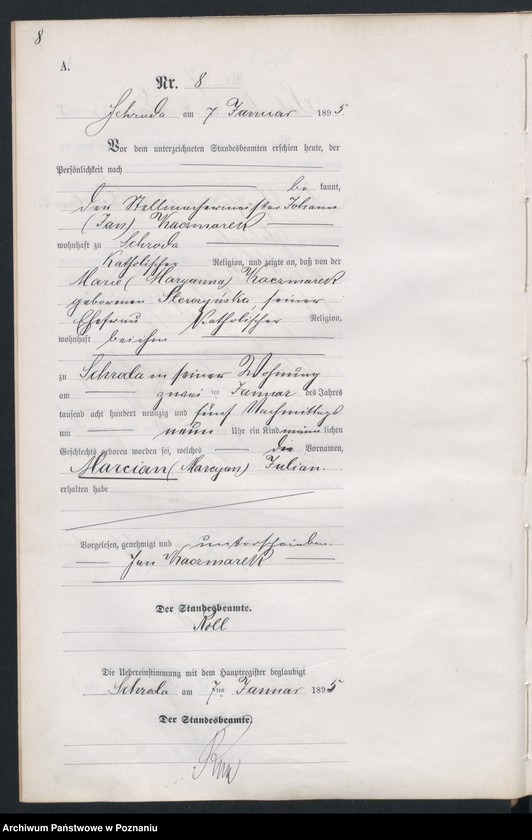 8
A.
Nr. 8
Schroda am 7. Januar 1895.
Vor dem unterzeichneten Standesbeamten erschien heute, der
Persönlichkeit nach
be kannt,
der Stellmachermeister Johann
(Jan) Kaczmarek
wohnhaft zu Schroda
Katholischer Religion, und zeigte an, daß von der
Marie (Maryanna) Kaczmarek
geborenen, seiner
Ehefrau Katholischer Religion,
wohnhaft bei ihm
zu Schroda in seiner Wohnung
am zwei ten Januar des Jahres
tausend acht hundert neunzig und fünf Nachmittags
um neun Uhr ein Kind männ lichen
Geschlechts geboren worden sei, welches die Vornamen,
Marcian (Marcyan) Julian.
erhalten habe
Vorgelesen, genehmigt und unterschrieben.
Jan Kaczmarek
Der Standesbeamte.
Roll
Die Uebereinstimmung mit dem Hauptregister beglaubigt
Schroda am 7ten Januar 1895
Der Standesbeamte.
Archiwum Państwowe w Poznaniu